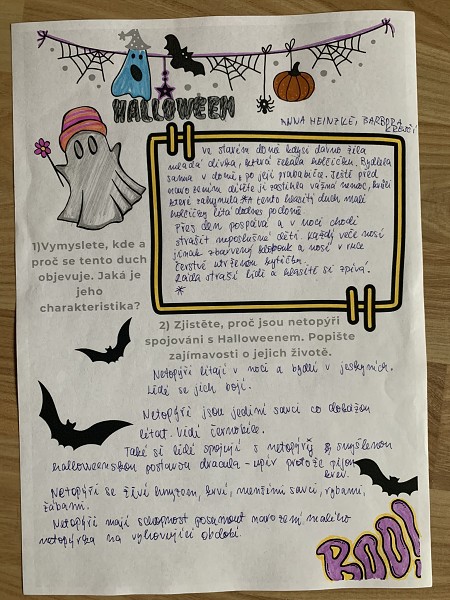 HALLOWEEN
ANNA HEINZKE, BARBORA
KREJČÍ
ve starém domě kdysi dávno žila
mladá dívka, která čekala holčičku. Bydlela
sama v domě po její prababičce. Ještě před
narozením dítěte ji zastihla vážná nemoc, kvůli
které zahynula * a tento hlasitý duch malé
holčičky lítá dodnes po domě
Přes den pospává a v noci chodí
strašit neposlušné děti. Každý večer nosí
jinak zbarvený klobouk a nosí v ruce
čerstvě utrženou kytičku.
Ráda straší lidi a hlasitě si zpívá.
*
1)Vymyslete, kde a
proč se tento duch
objevuje. Jaká je
jeho
charakteristika?
2) Zjistěte, proč jsou netopýři
spojováni s Halloweenem. Popište
zajímavosti o jejich životě.
Netopýři lítají v noci a bydlí v jeskyních.
Lidé se jich bojí.
Netopýři jsou jediní savci co dokážou
lítat. Vidí černobíle.
Také si lidé spojují s netopýry smyšlenou
halloweenskou postavou dracula - upír protože pijou
krev.
Netopýři se živí hmyzem, krví, menšími savci, rybami,
žábami.
Netopýři mají schopnost posunout narození malého
netopýrka na vyhovující období.
BOO!